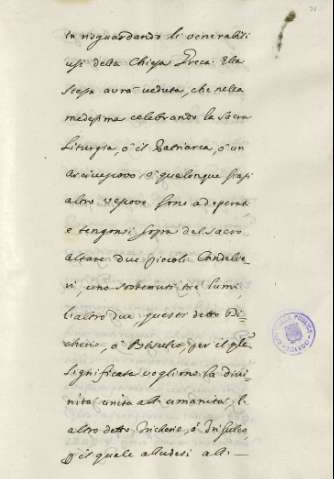 ta risguardando li venerabili
usi della Chiesa Greca. Ella
stessa avrà veduto, che nella
medesima celebrando la Sacra
Liturgia, o il Patriarca, o un
Arcivescovo, o qualonque siasi
altro Vescovo sono adoperati
e tengonsi sopra del Sacro
altare due piccoli Candelie-
ri, uno sostenuti tre lumi,
l'altro due, questo detto Di-
cherio, o Bisulco, per il qle
significata vogliono la divi-
nità unita all' umanità, l'
altro detto Tricherio, o Trisulco,
p il quale alludesi all' —